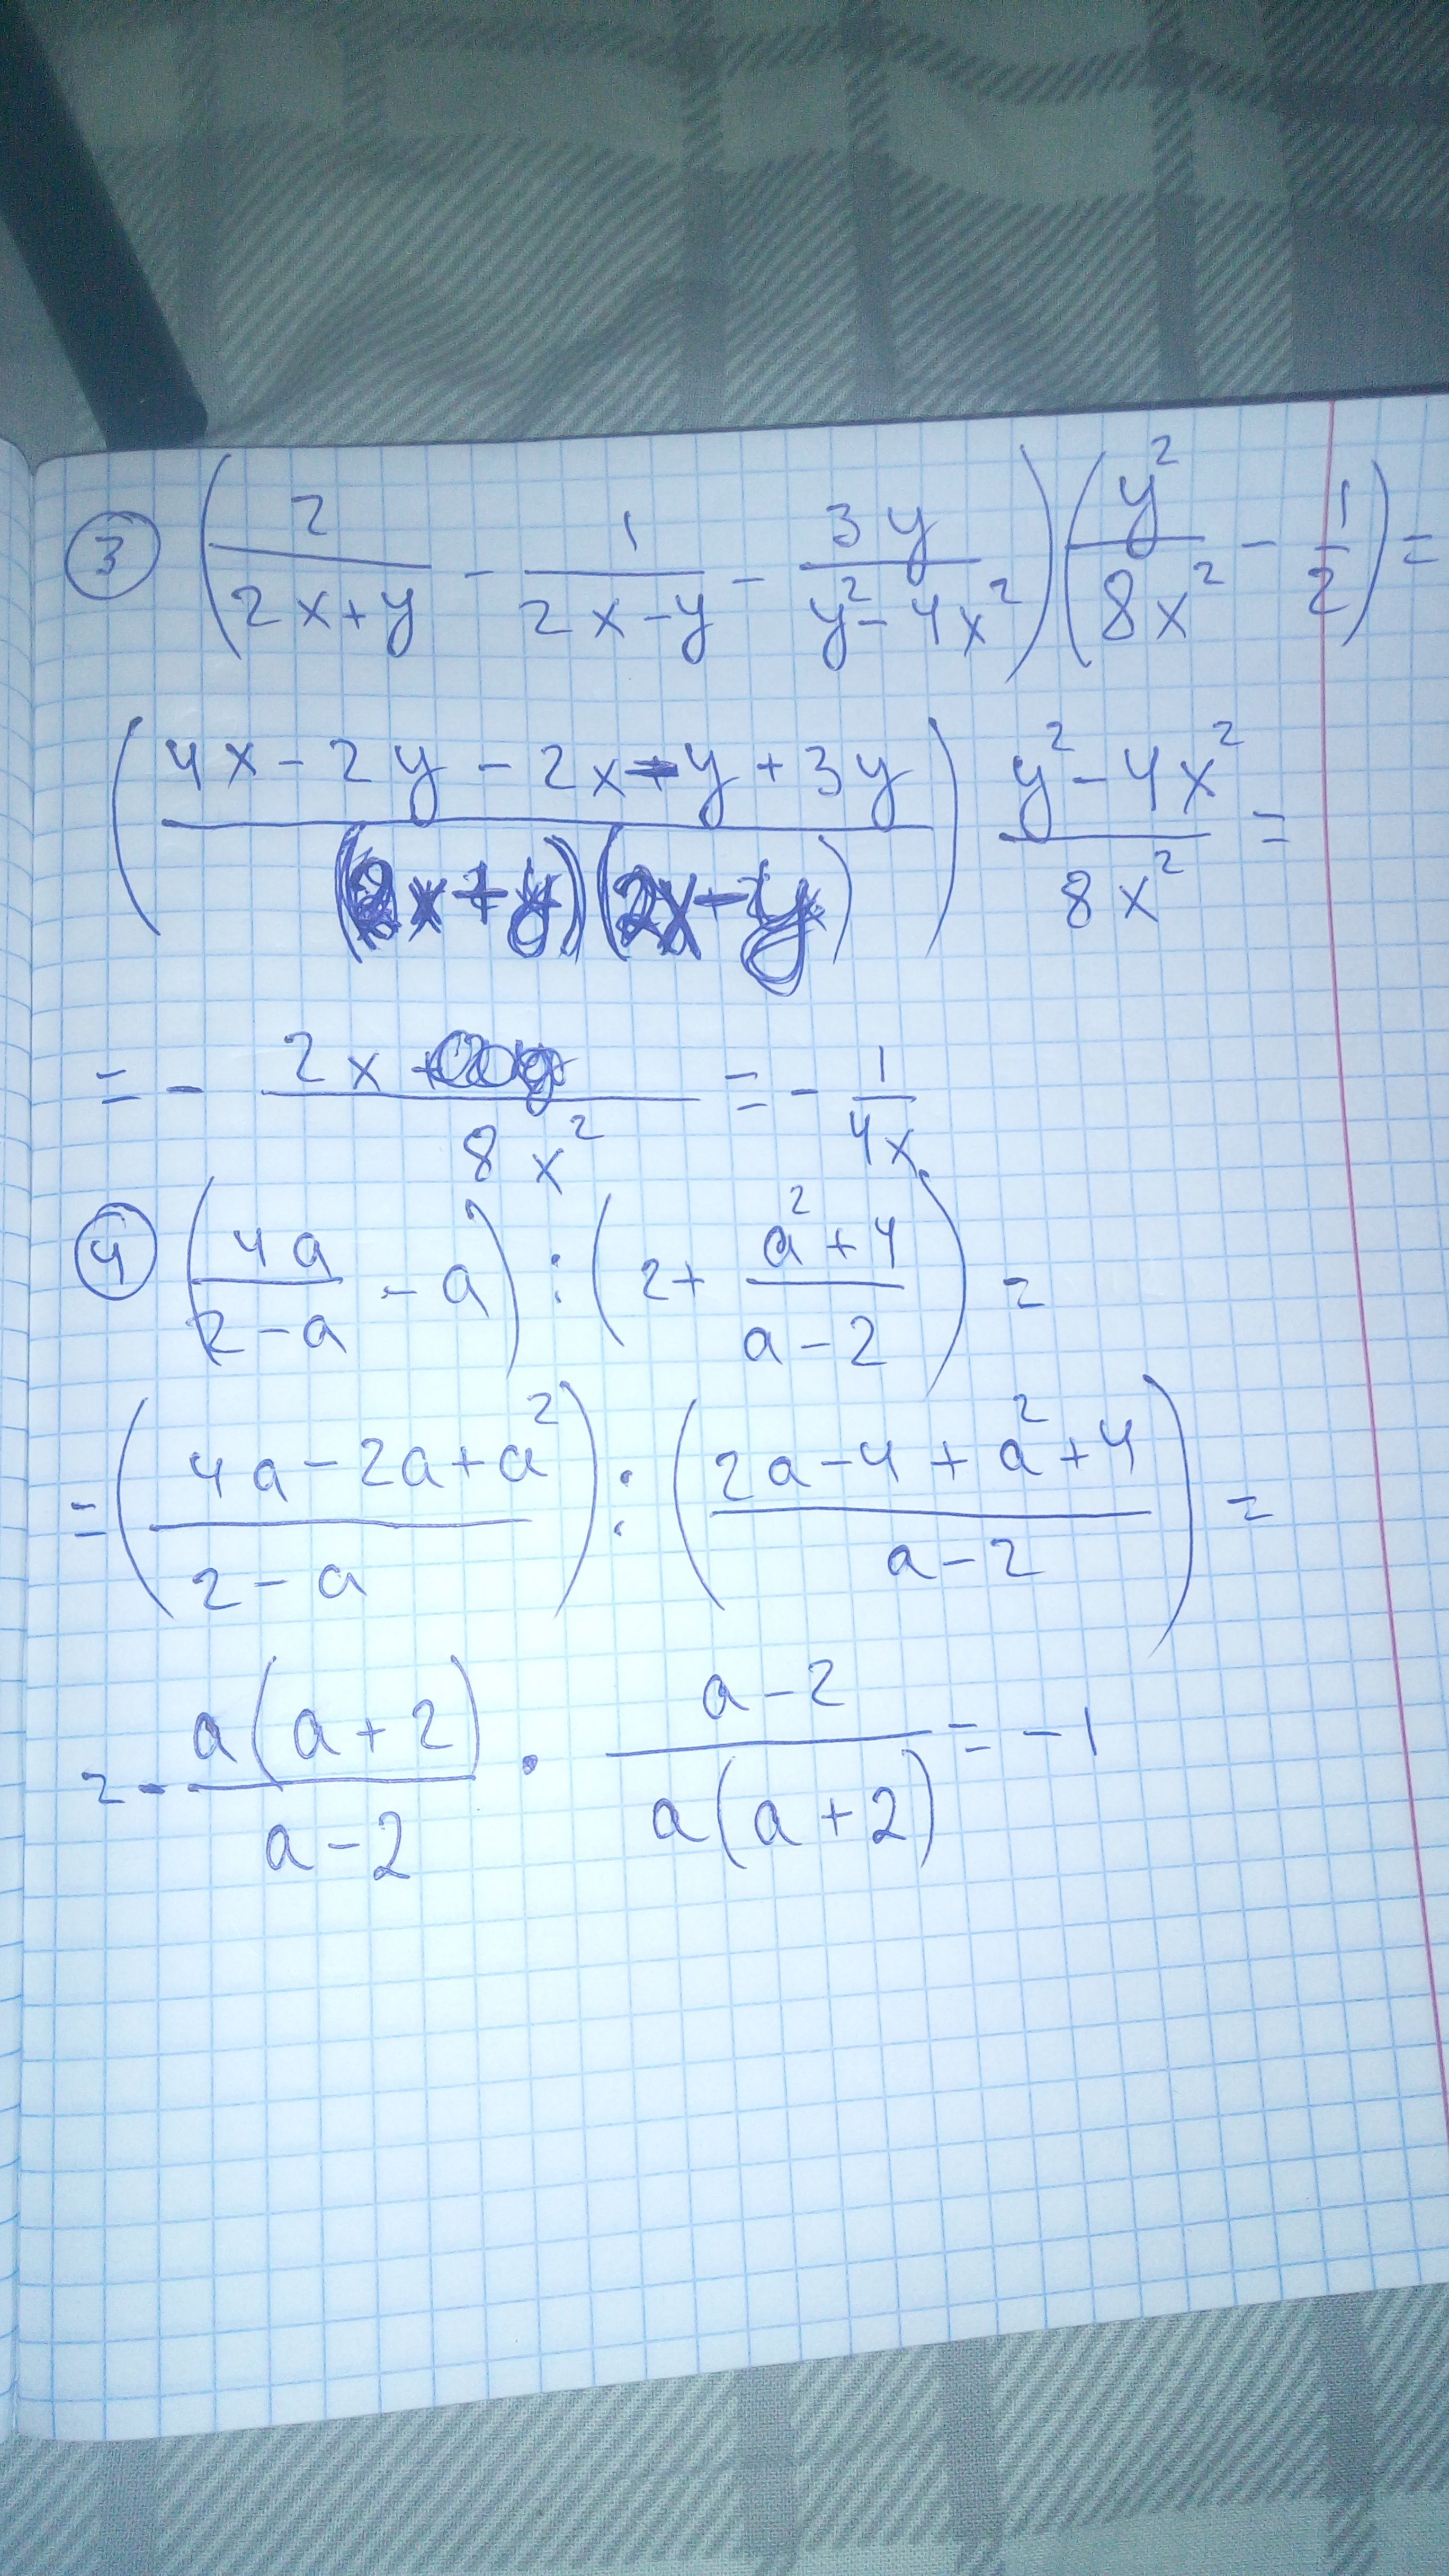 ③ (2/(2x+y) - 1/(2x-y) - 3y/(y²-4x²))(y²/8x² - 1/2) =
((4x-2y-2x-y+3y)/((2x+y)(2x-y))) (y²-4x²)/8x² =
= - 2x/8x² = - 1/4x
④ (4a/(2-a) - a) : (2 + (a²+4)/(a-2)) =
= ((4a-2a+a²)/(2-a)) : ((2a-4+a²+4)/(a-2)) =
= - a(a+2)/(a-2) · (a-2)/(a(a+2)) = -1